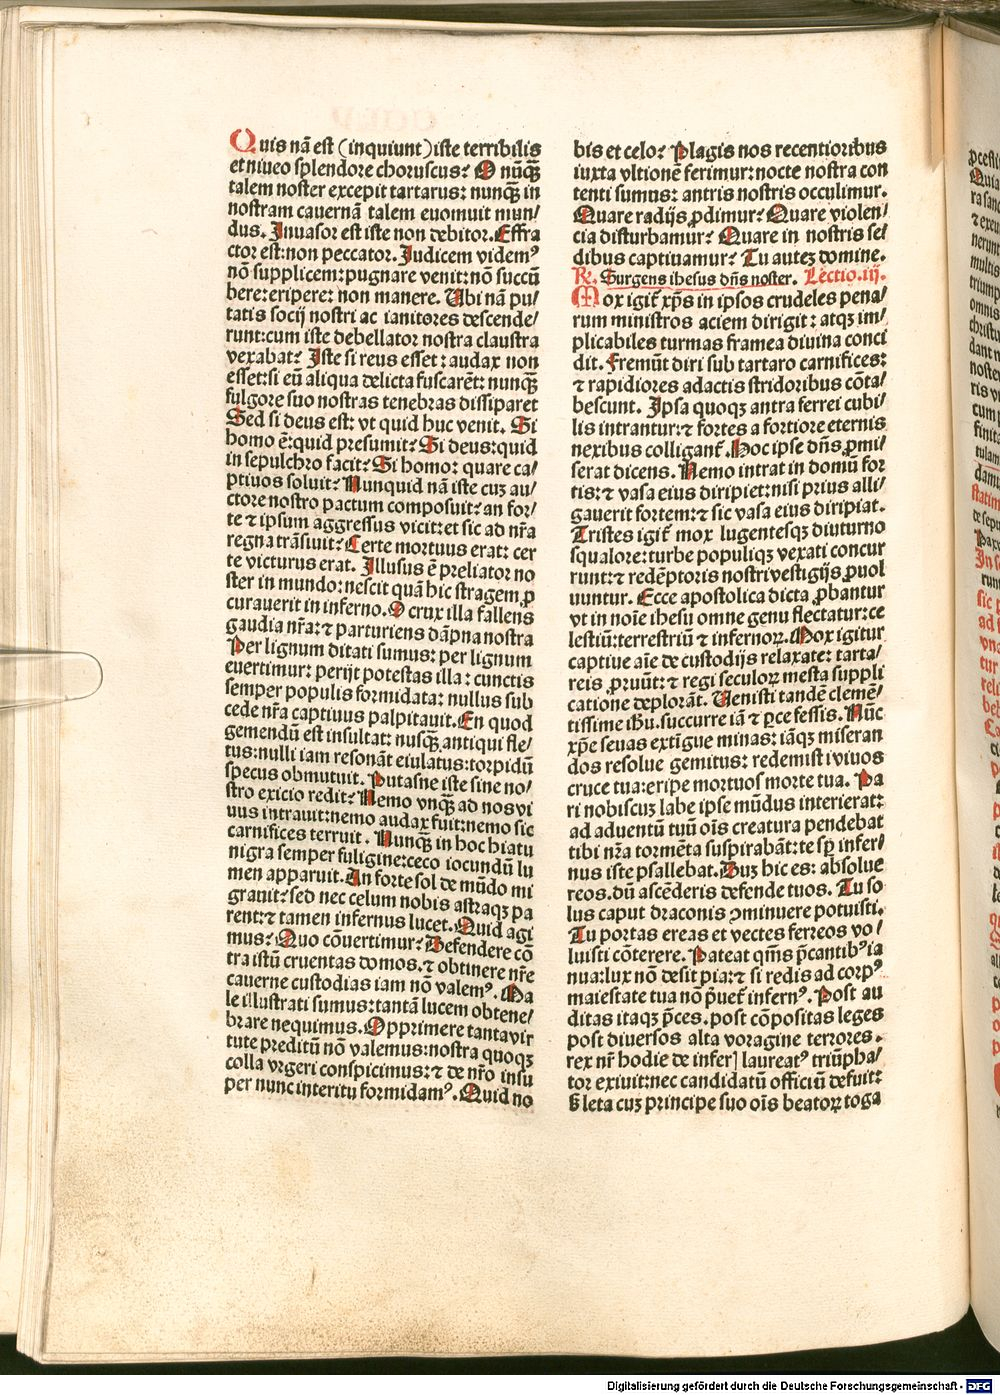 Quis nā est (inquiunt) iste terribilis
et niueo splendore choruscus? O nūq̄ꝫ
talem noster excepit tartarus: nunq̄ꝫ in
nostram cauernā talem euomuit mun/
dus. Inuasor est iste non debitor. Effra
ctor est: non peccator. Judicem videmꝰ
nō supplicem: pugnare venit: nō succū
bere: eripere: non manere. Ubi nā pu/
tatis socij nostri ac ianitores descende/
runt: cum iste debellator nostra claustra
vexabat? Iste si reus esset: audax non
esset: si eū aliqua delicta fuscarēt: nunq̄ꝫ
fulgore suo nostras tenebras dissiparet
Sed si deus est: vt quid huc venit. Si
homo ē: quid presumit? Si deus: quid
in sepulchro facit? Si homo: quare ca/
ptiuos soluit? Nunquid nā iste cuꝫ au/
ctore nostro pactum composuit? an for/
te ⁊ ipsum aggressus vicit: et sic ad nr̄a
regna trāsiuit? Certe mortuus erat: cer
te victurus erat. Illusus ē preliator no
ster in mundo: nescit quā hic stragem ꝓ
curauerit in inferno. O crux illa fallens
gaudia nr̄a: ⁊ parturiens dāpna nostra
Per lignum ditati sumus: per lignum
euertimur: perijt potestas illa: cunctis
semper populis formidata: nullus sub
cede nr̄a captiuus palpitauit. En quod
gemendū est insultat: nusq̄ꝫ antiqui fle/
tus: nulli iam resonāt eiulatus: torpidū
specus obmutuit. Putasne iste sine no/
stro exicio redit? Nemo vnq̄ꝫ ad nos vi
uus intrauit: nemo audax fuit: nemo sic
carnifices terruit. Nunq̄ꝫ in hoc hiatu
nigra semper fuligine: ceco iocundū lu
men apparuit. An forte sol de mūdo mi
grauit? sed nec celum nobis astraqꝫ pa
rent: ⁊ tamen infernus lucet. Quid agi
mus? Quo cōuertimur? Defendere cō
tra istū cruentas domos. ⁊ obtinere nr̄e
cauerne custodias iam nō valemꝰ. Ma
le illustrati sumus: tantā lucem obtene/
brare nequimus. Opprimere tanta vir
tute preditū nō valemus: nostra quoqꝫ
colla vrgeri conspicimus: ⁊ de nr̄o insu
per nunc interitu formidamꝰ. Quid no
bis et celo? Plagis nos recentioribus
iuxta vltionē ferimur: nocte nostra con
tenti sumus: antris nostris occulimur.
Quare radijs ꝓdimur? Quare violen/
cia disturbamur? Quare in nostris se/
dibus captiuamur? Tu auteꝫ domine.
R. Surgens ihesus dn̄s noster. Lectio .iij.
Mox igit̄ xp̄s in ipsos crudeles pena/
rum ministros aciem dirigit: atqꝫ im/
plicabiles turmas framea diuina conci
dit. Fremūt diri sub tartaro carnifices:
⁊ rapidiores adactis stridoribus cōta/
bescunt. Ipsa quoqꝫ antra ferrei cubi/
lis intrantur: ⁊ fortes a fortiore eternis
nexibus colligant̄. Hoc ipse dn̄s ꝓmi/
serat dicens. Nemo intrat in domū for
tis: ⁊ vasa eius diripiet: nisi prius alli/
gauerit fortem: ⁊ sic vasa eius diripiat.
Tristes igit̄ mox lugentesqꝫ diuturno
squalore: turbe populiqꝫ vexati concur
runt: ⁊ redēptoris nostri vestigijs ꝓuol
uuntur. Ecce apostolica dicta ꝓbantur
vt in noīe ihesu omne genu flectatur: ce
lestiū: terrestriū ⁊ infernoꝝ. Mox igitur
captiue aīe de custodijs relaxate: tarta/
reis ꝓruūt: ⁊ regi seculoꝝ mesta suppli
catione deplorāt. Uenisti tandē clemē/
tissime ihū. succurre iā ⁊ ꝑce fessis. Nūc
xp̄e seuas extīgue minas: iāqꝫ miseran
dos resolue gemitus: redemisti viuos
cruce tua: eripe mortuos morte tua. Pa
ri nobiscuꝫ labe ipse mūdus interierat:
ad aduentū tuū oīs creatura pendebat
tibi nr̄a tormēta suspirabāt: te sꝑ infer/
nus iste psallebat. Duꝫ hic es: absolue
reos. dū ascēderis defende tuos. Tu so
lus caput draconis ↄminuere potuisti.
Tu portas ereas et vectes ferreos vo/
luisti cōterere. Pateat qm̄s p̄cantibꝰ ia
nua: lux nō desit pia: ⁊ si redis ad corpꝰ
maiestate tua nō p̄uet̄ infernꝰ. Post au
ditas itaqꝫ p̄ces. post cōpositas leges
post diuersos alta voragine terrores.
rex nr̄ hodie de inferꝭ laureatꝰ triūpha/
tor exiuit: nec candidatū officiū defuit:
ß leta cuꝫ principe suo oīs beatoꝝ toga
Digitalisierung gefördert durch die Deutsche Forschungsgemeinschaft - DFG